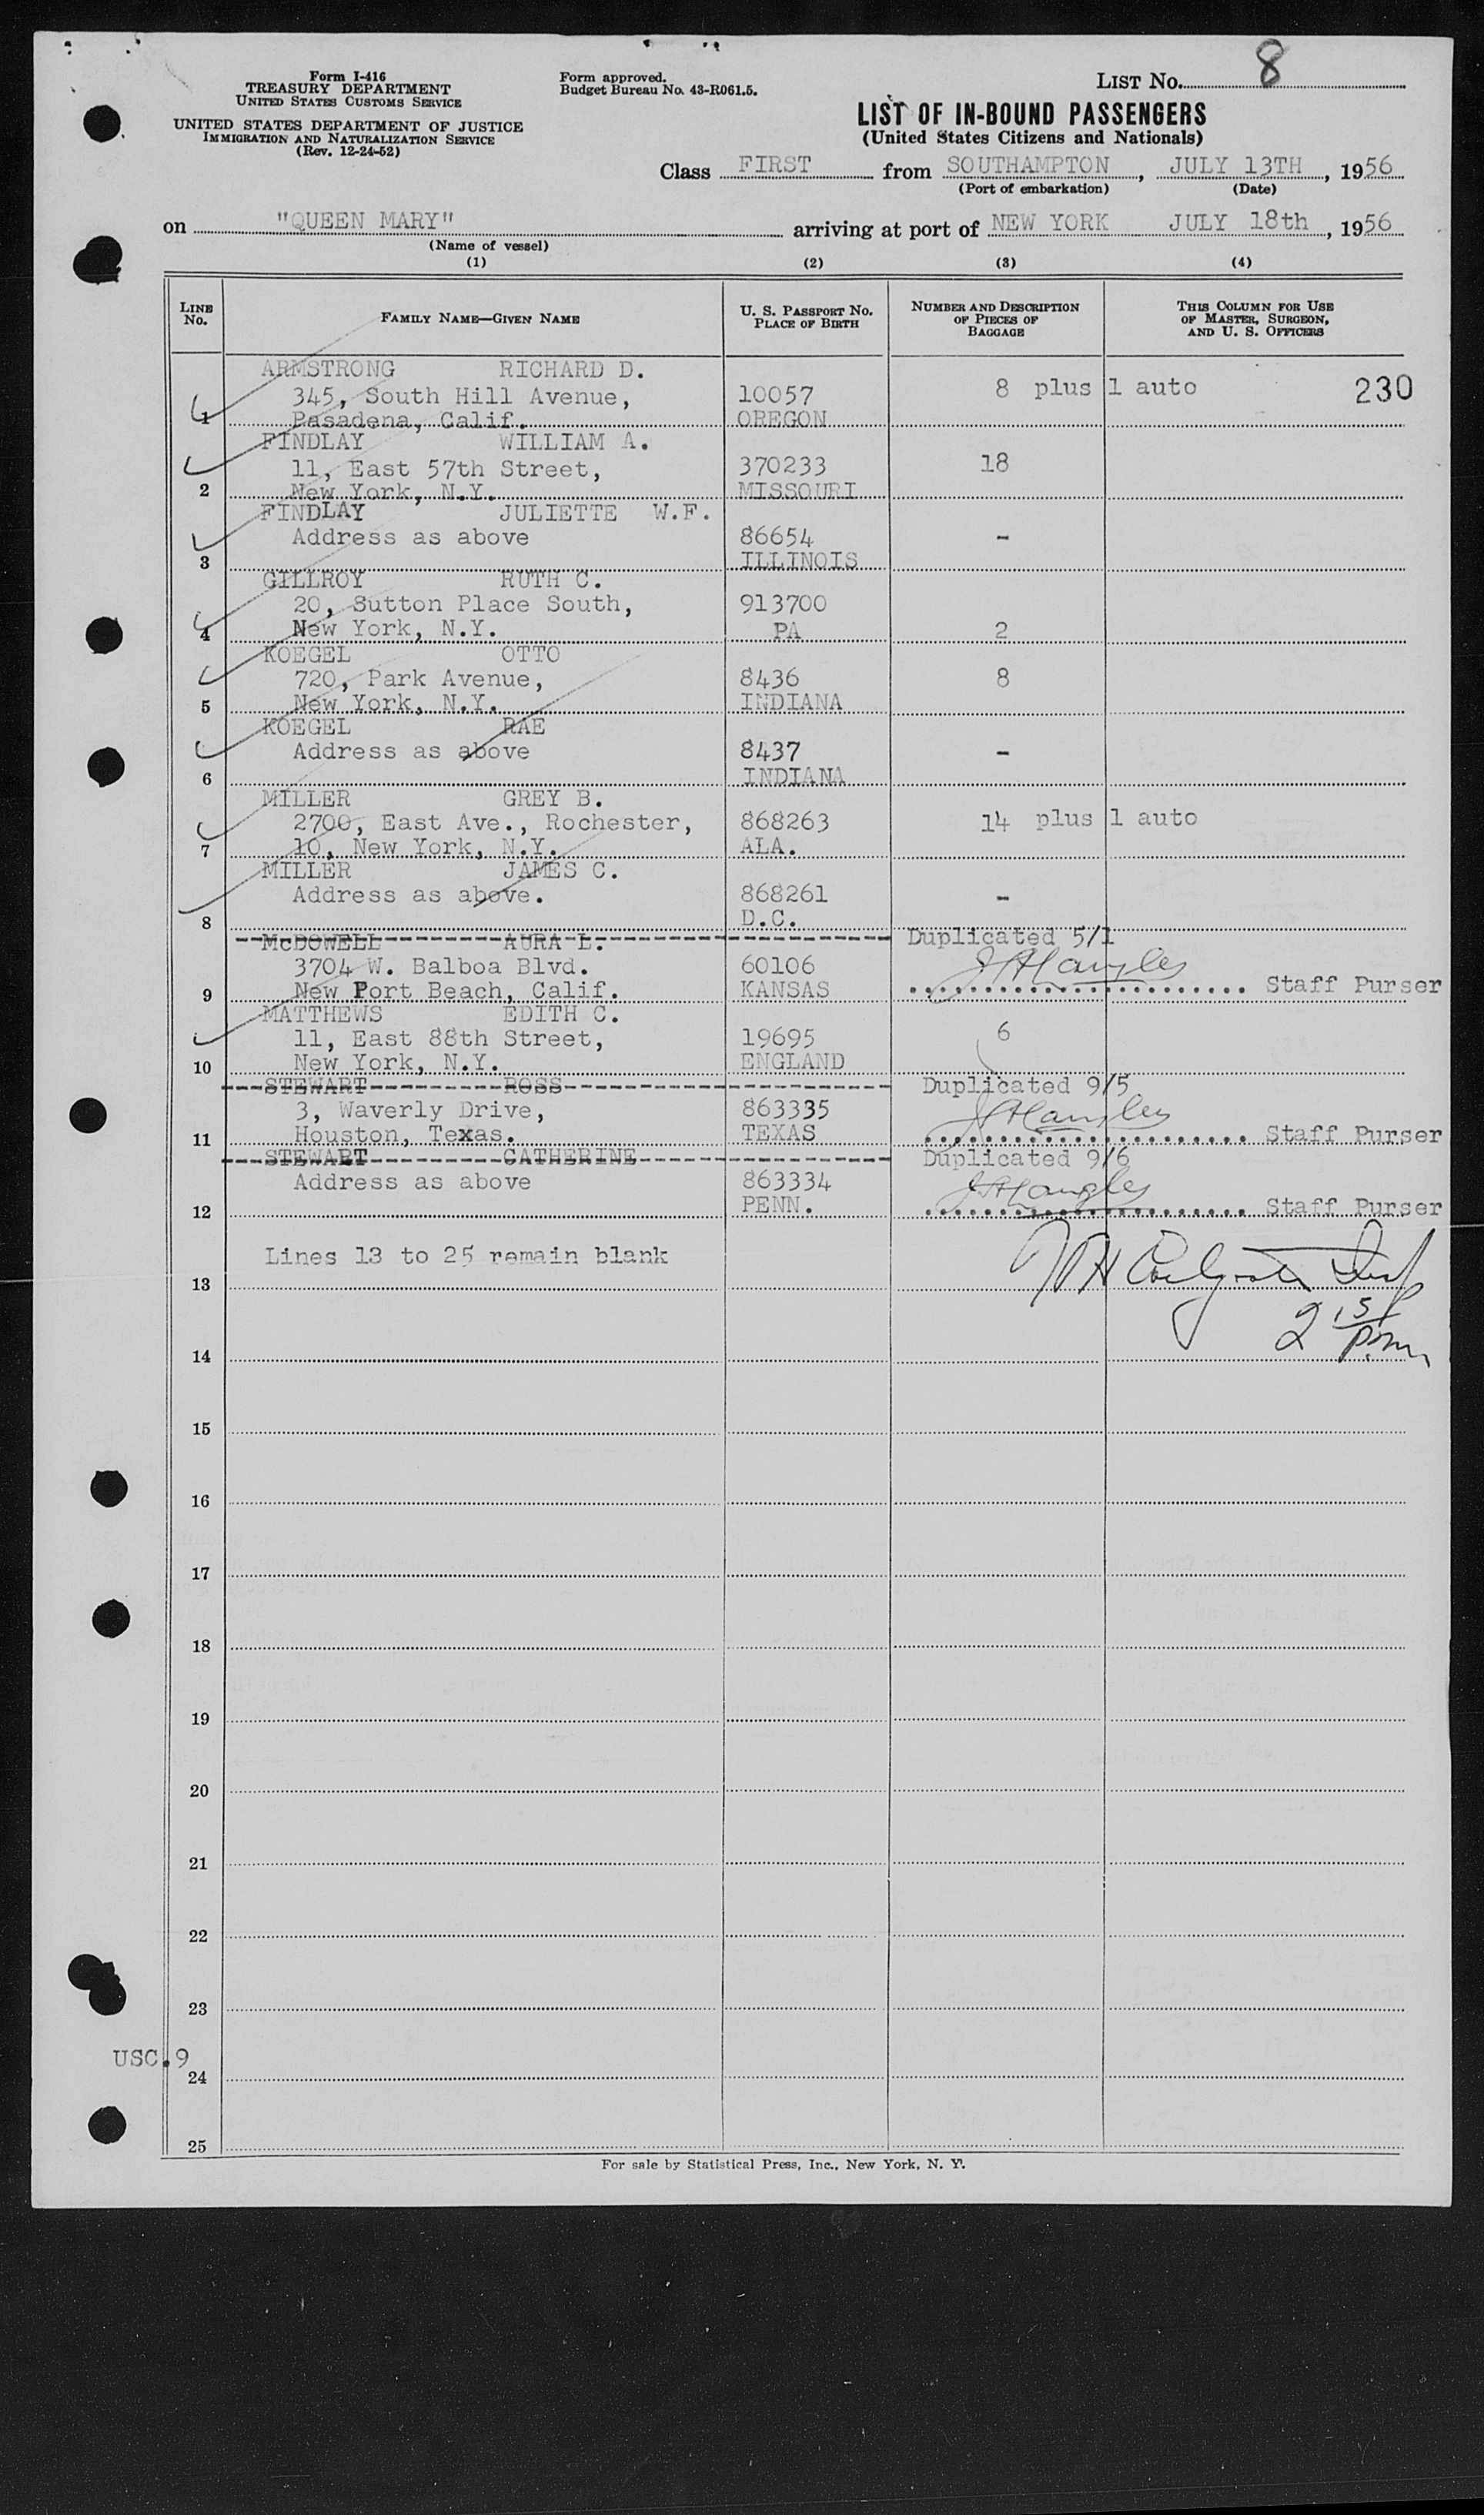 Form I-416
TREASURY DEPARTMENT
UNITED STATES CUSTOMS SERVICE
UNITED STATES DEPARTMENT OF JUSTICE
IMMIGRATION AND NATURALIZATION SERVICE
(Rev. 12-24-52)
Form approved.
Budget Bureau No. 43-R061.5.
LIST No. 8
LIST OF IN-BOUND PASSENGERS
(United States Citizens and Nationals)
Class FIRST from SOUTHAMPTON, JULY 13TH, 1956
(Port of embarkation) (Date)
on "QUEEN MARY" arriving at port of NEW YORK JULY 18th, 1956
(Name of vessel)
(1) (2) (3) (4)
LINE No. FAMILY NAME—GIVEN NAME U. S. PASSPORT No. PLACE OF BIRTH NUMBER AND DESCRIPTION OF PIECES OF BAGGAGE THIS COLUMN FOR USE OF MASTER, SURGEON, AND U. S. OFFICERS
ARMSTRONG RICHARD D.
345, South Hill Avenue, 10057 8 plus 1 auto 230
1 Pasadena, Calif. OREGON
FINDLAY WILLIAM A.
11, East 57th Street, 370233 18
2 New York, N.Y. MISSOURI
FINDLAY JULIETTE W.F.
Address as above 86654 -
3 ILLINOIS
GILLROY RUTH C.
20, Sutton Place South, 913700
4 New York, N.Y. PA 2
KOEGEL OTTO
720, Park Avenue, 8436 8
5 New York, N.Y. INDIANA
KOEGEL RAE
Address as above 8437 -
6 INDIANA
MILLER GREY B.
2700, East Ave., Rochester, 868263 14 plus 1 auto
7 10, New York, N.Y. ALA.
MILLER JAMES C.
Address as above. 868261 -
8 D.C.
McDOWELL AURA L. Duplicated 5/1
3704 W. Balboa Blvd. 60106
9 New Port Beach, Calif. KANSAS Staff Purser
MATTHEWS EDITH C.
11, East 88th Street, 19695 6
10 New York, N.Y. ENGLAND
STEWART ROSS Duplicated 9/5
3, Waverly Drive, 863335
11 Houston, Texas. TEXAS Staff Purser
STEWART CATHERINE Duplicated 9/6
Address as above 863334
12 PENN. Staff Purser
Lines 13 to 25 remain blank
13
2 15 p.m.
14
15
16
17
18
19
20
21
22
23
USC.9
24
25
For sale by Statistical Press, Inc., New York, N. Y.